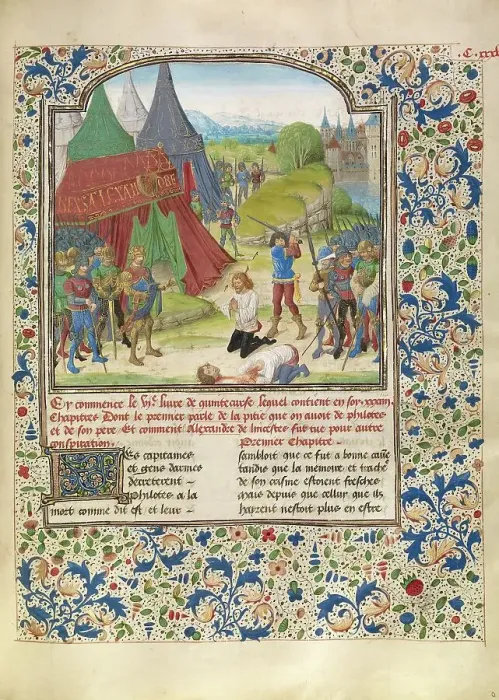 Cy commence le vi.e liure de quinte curse lequel contient en soy xxxiii
Chapitres Dont le premier parle de la pitie que on auoit de philotes
et de son pere Et comment Alexandre de lincestes fut tue pour autre
conspiration. Premier Chapitre
Les capitaines
et gens darmes
decreterent
Philotes a la
mort comme dit est et leur
sembloit que ce fut a bonne cause
tandis que la memoire et trache
de son crisme estoient fresches
mais depuis que cellui que ilz
hayoient nestoit plus en estre